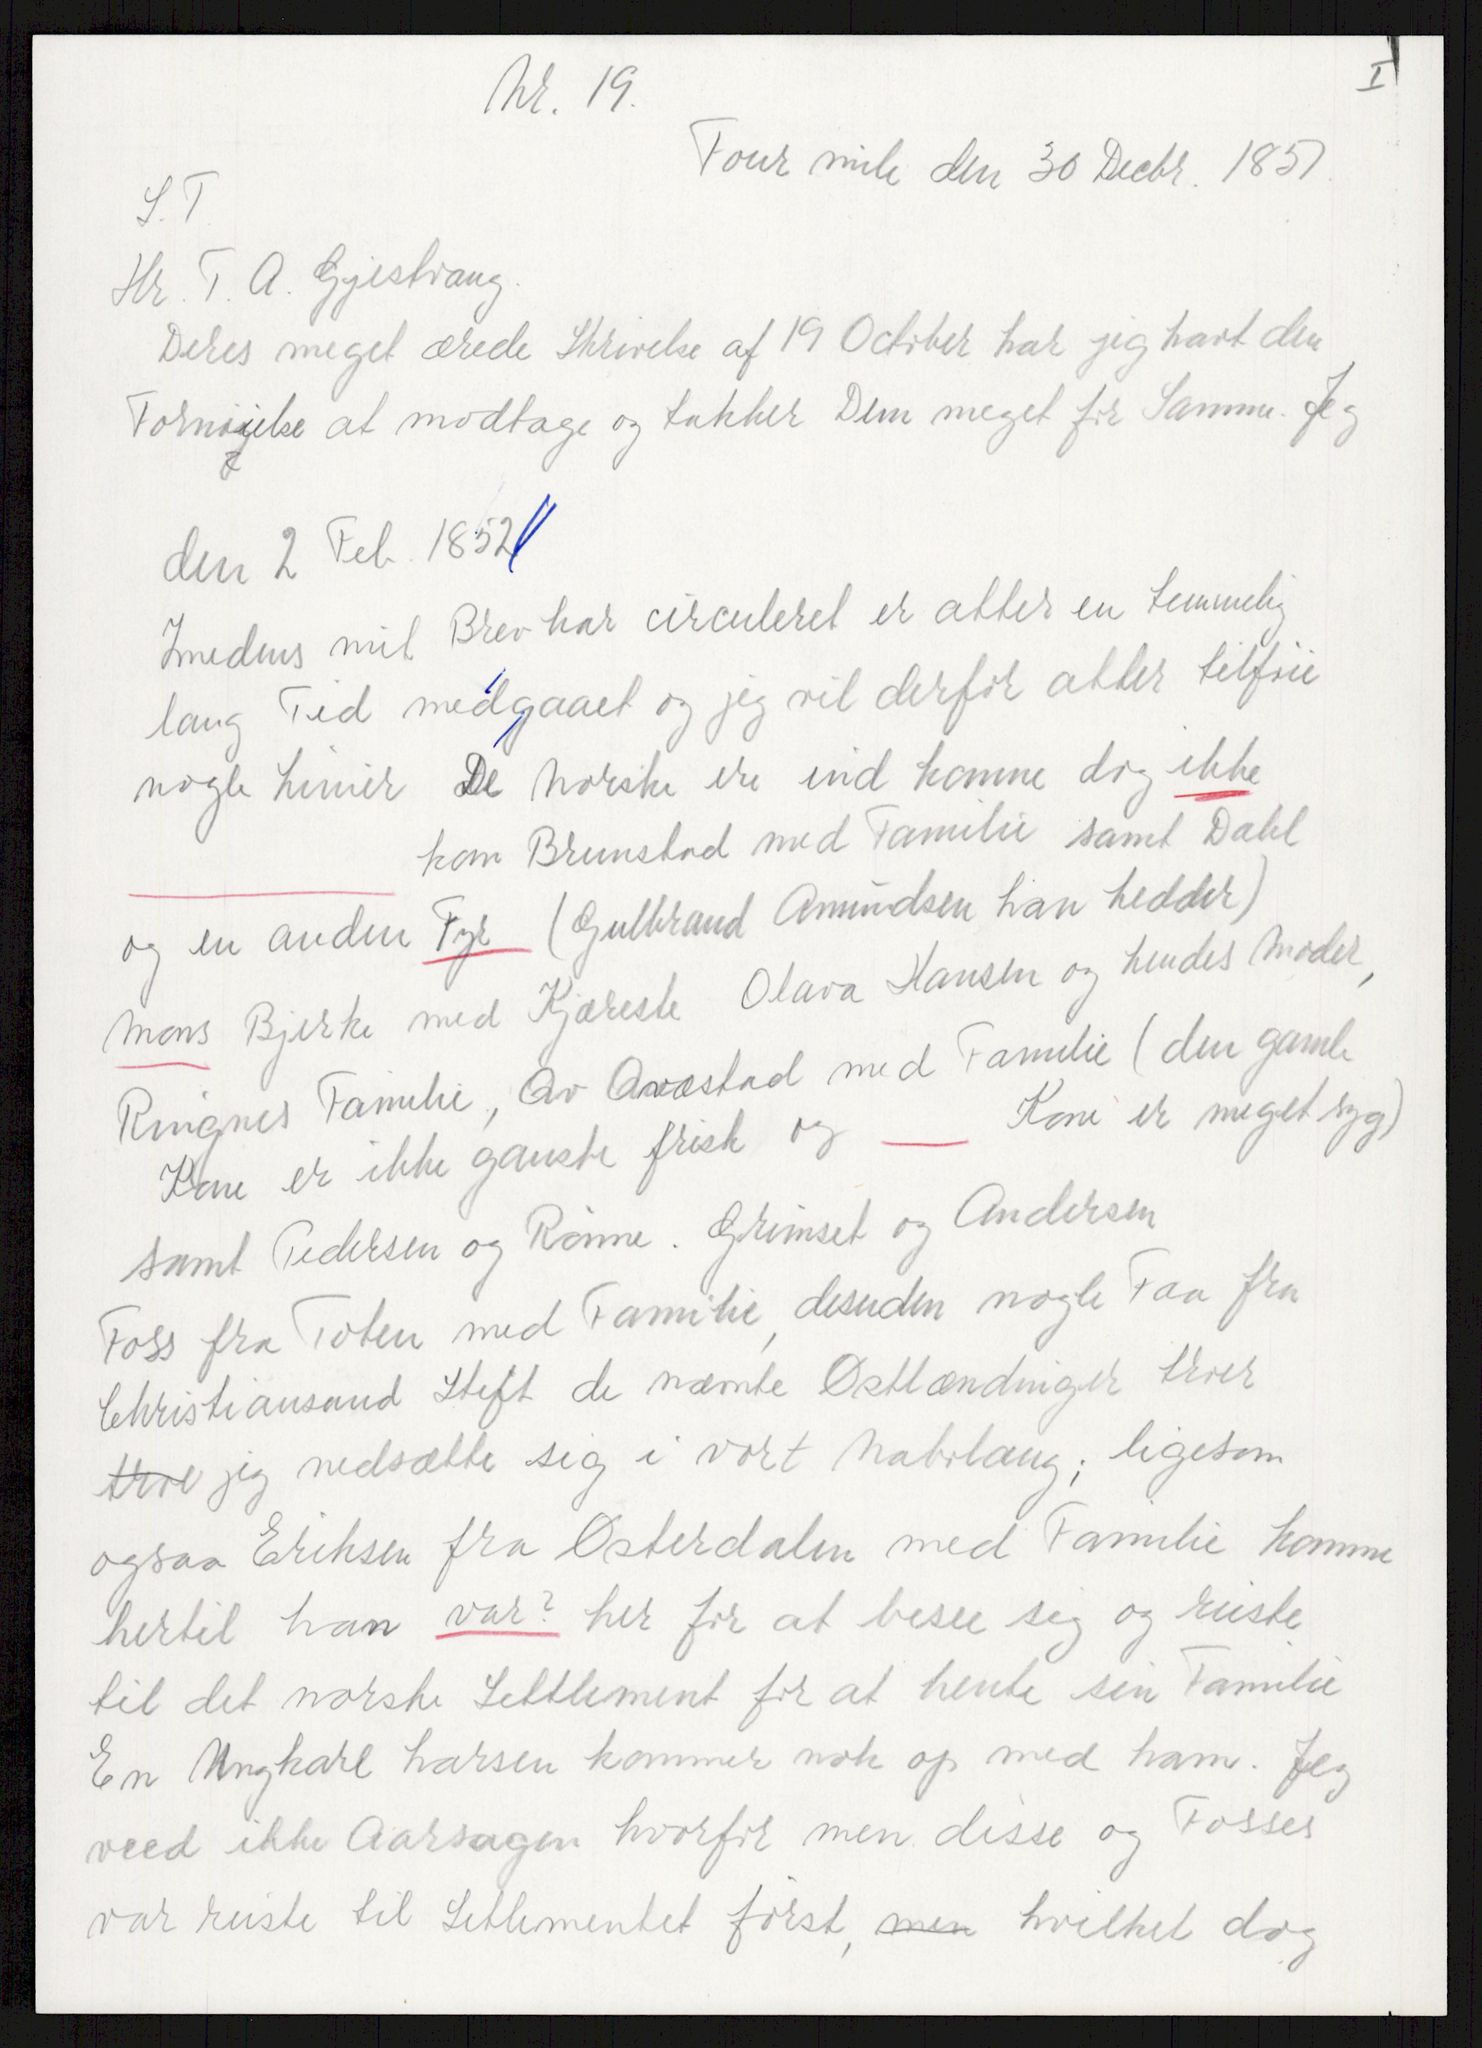 Nr. 19.
I
Four mile den 30 Decbr. 1851.
S. T.
Hr. T. A. Gjestvang.
Deres meget ærede Skrivelse af 19 October har jeg havt den
Fornøjelse at modtage og takker Dem meget for Samme. Jeg
den 2 Feb. 1852
Imedens mit Brev har circuleret er atter en temmelig
lang Tid medgaaet og jeg vil derfor atter tilföie
nogle Linier De Norske ere ind komne dog ikke
kom Brunstad med Familie samt Dahl
og en anden Fyr (Gulbrand Amundsen han hedder)
Mons Bjerke med Kjæreste Olava Hansen og hendes Moder,
Ringnes Familie, Av Avestad med Familie (den gamle
Kone er ikke ganske frisk og Kone er meget syg)
samt Pedersen og Rönne. Grimset og Andersen
Foss fra Toten med Familie, desuden nogle Faa fra
Christiansand Stift de nævnte Østlændinger troer
troe jeg nedsætte sig i vort Nabolaug; ligesom
ogsaa Eriksen fra Østerdalen med Familie komme
hertil han var? her for at besee sig og reiste
til det norske Settlement for at hente sin Familie
En Ungkarl Larsen kommer nok op med ham. Jeg
veed ikke Aarsagen hvorfor men disse og Fosses
var reiste til Setlementet først, men hvilket dog